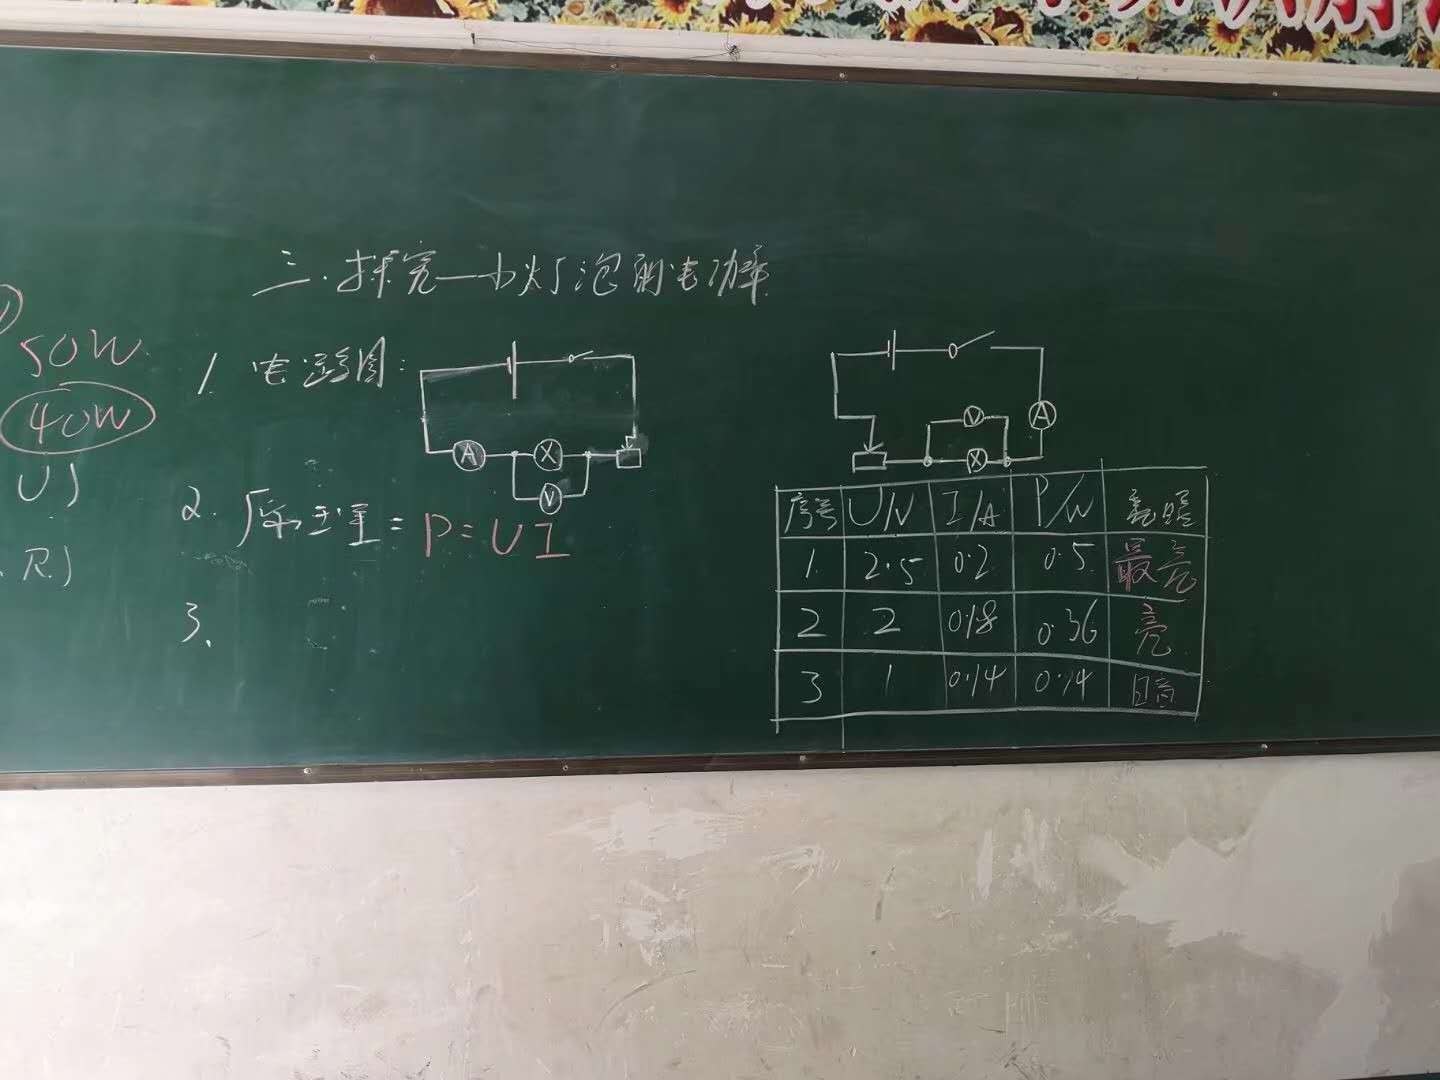 三.探究—小灯泡的电功率
50W
40W
U)
R)
1. 电路图:
A X V
V A X
2. 原理 = P=UI
3、
序号 U/V I/A P/W 亮暗
1 2.5 0.2 0.5 最亮
2 2 0.18 0.36 亮
3 1 0.14 0.14 暗